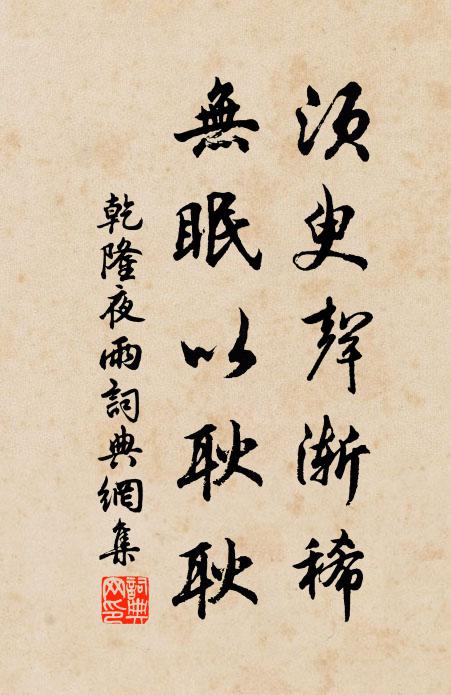 須臾聲漸稀
無眠以耿耿
乾隆夜雨詞典網集
詞典網印